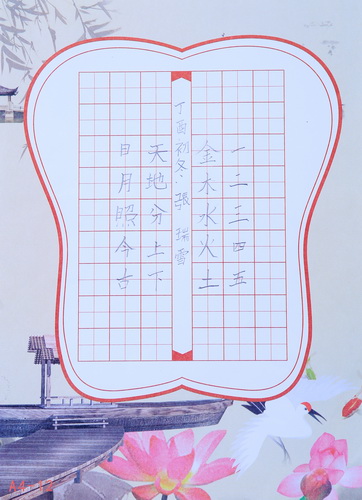 一二三四五
金木水火土
丁酉初冬·張 雪
天地分上下
日月照今古